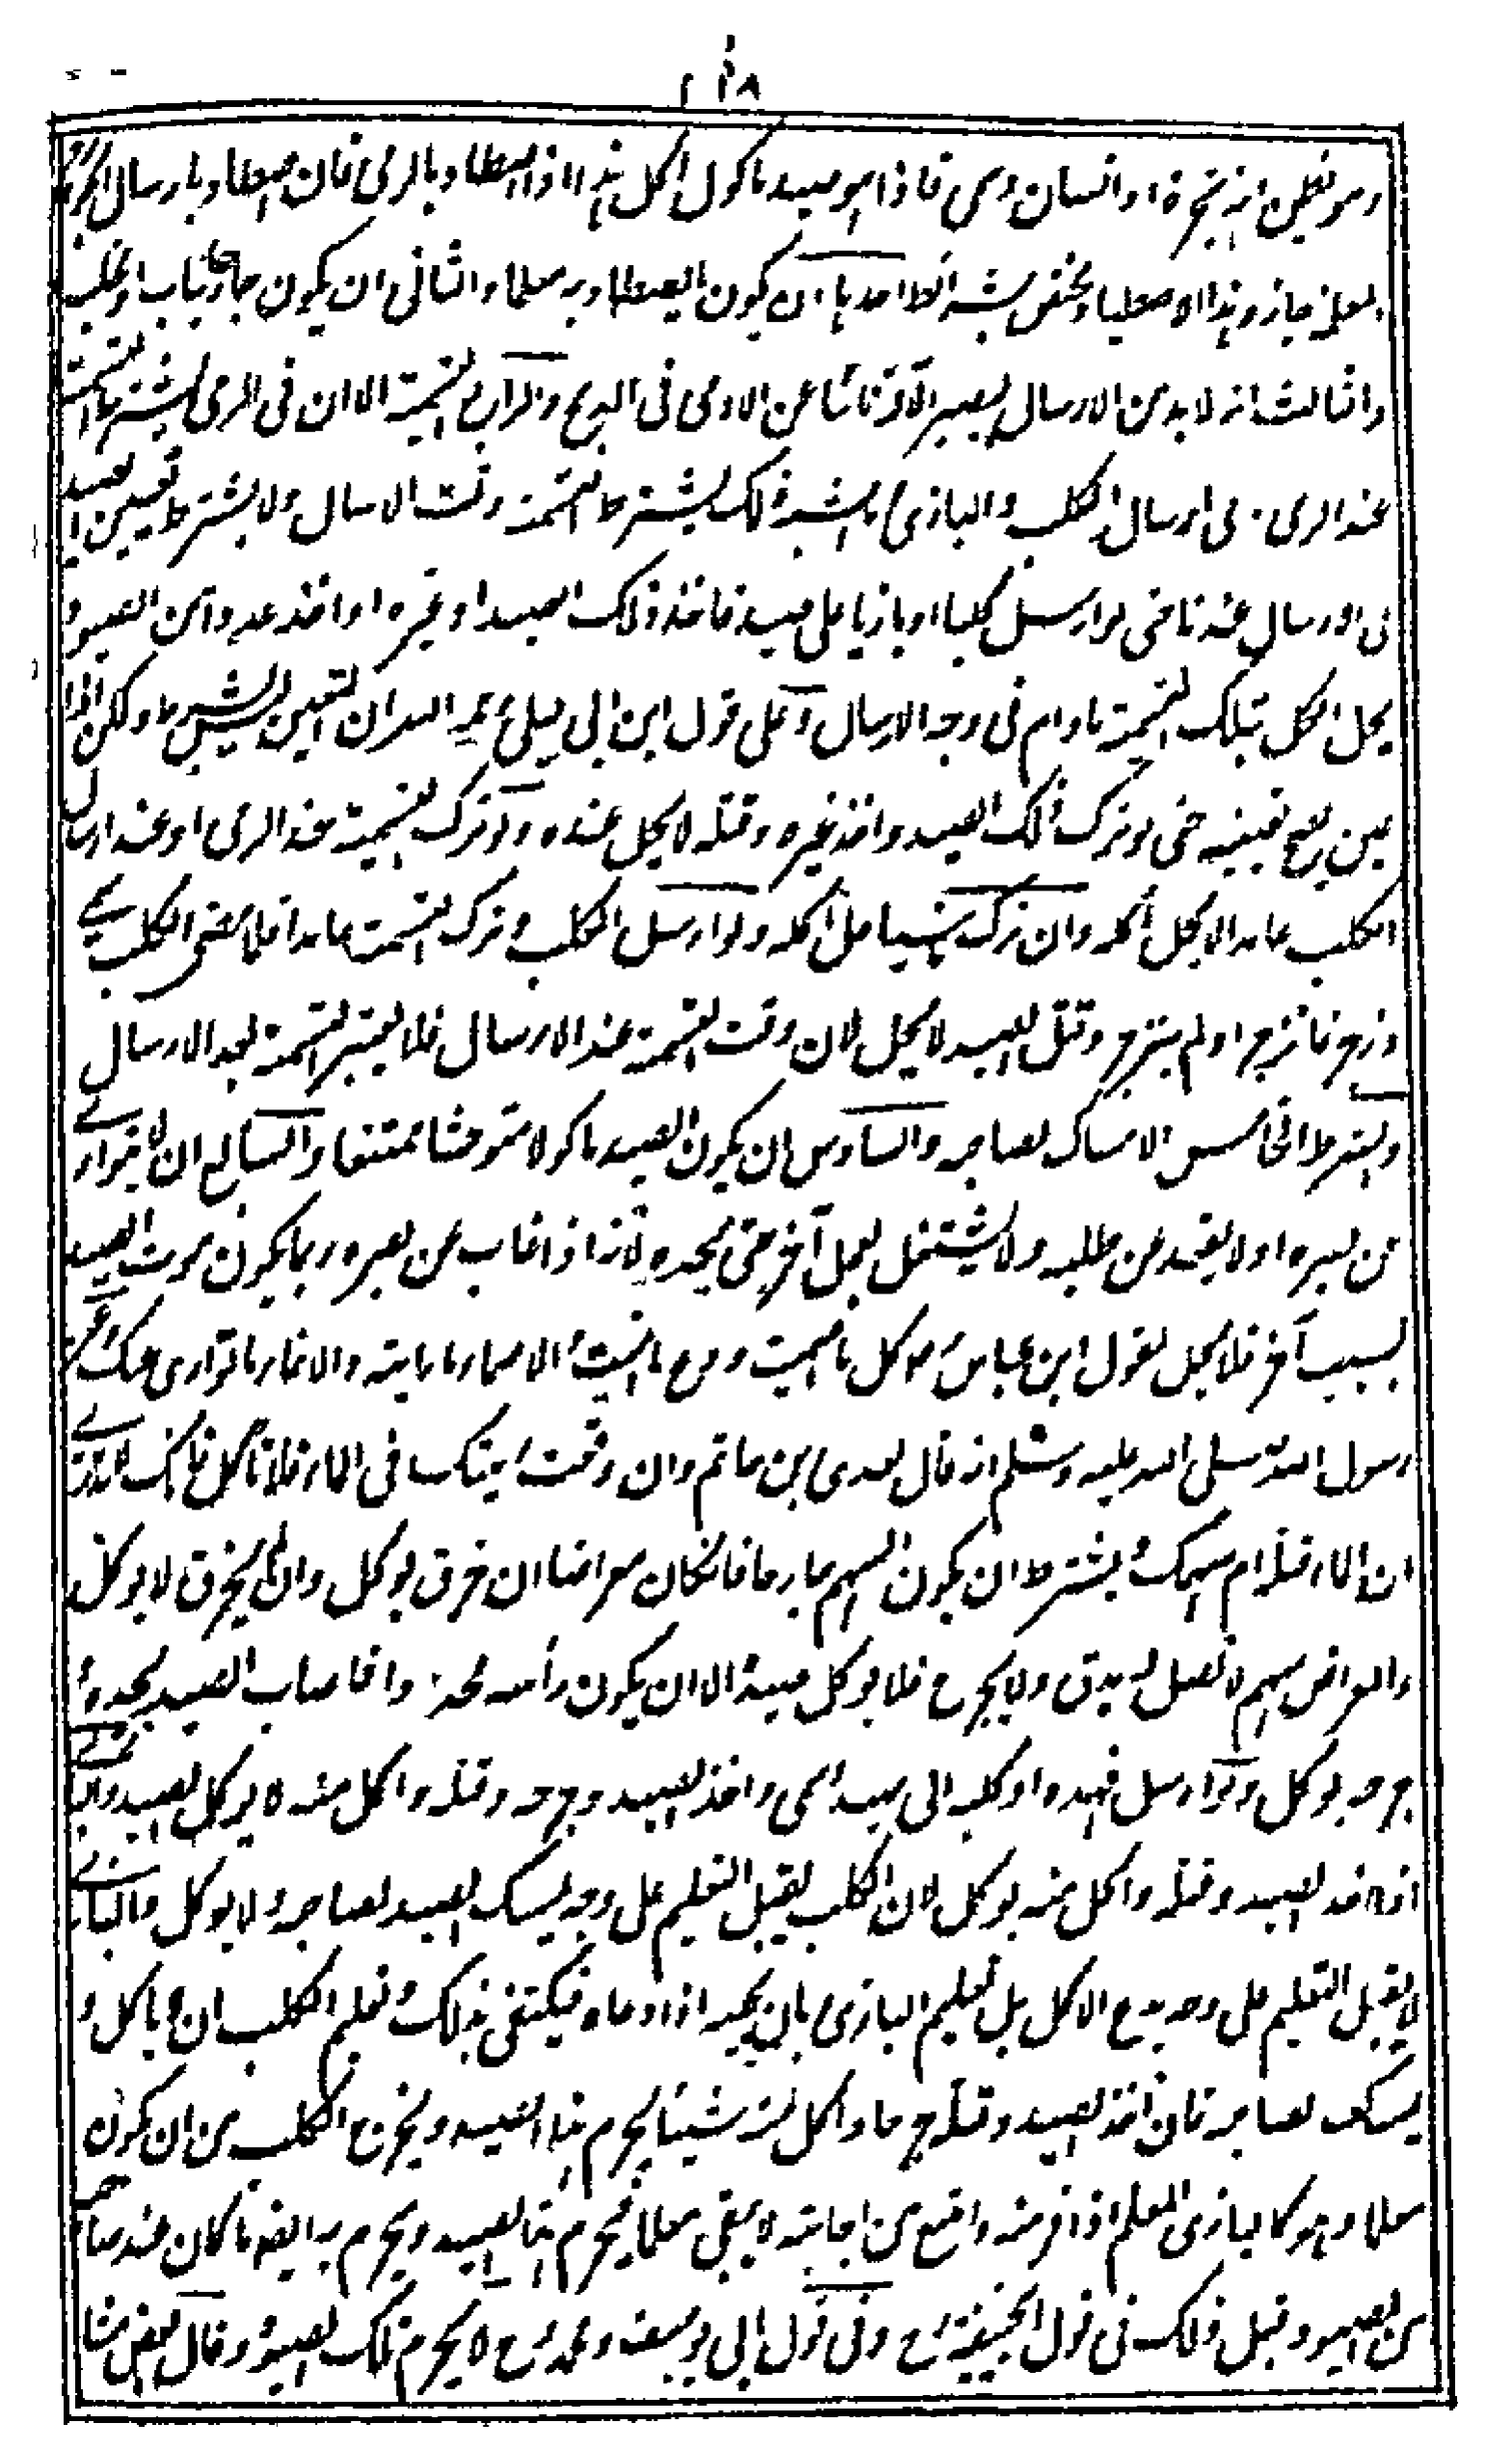 وهو يظن انه شجرة او انسان رمى فاذا هو صيد ماكول اكل هذا اذا اصطاد بالرمى فان اصطاد بارسال
المعلم جاز وهذا الاصطياد يختص بشرائط احدها ان يكون اصطاد به معلما والثانى ان يكون جارحا بناب او مخلب
والثالث انه لا بد من الارسال ليصير الآلة نائبا عن الادمى فى الذبح والرابع التسمية الا ان فى الرمى يشترط التسمية
عند الرمى وفى ارسال الكلب والبازى وما اشبه ذلك يشترط التسمية وقت الارسال ولا يشترط تعيين الصيد
فى الارسال عندنا حتى لو ارسل كلبا او بازيا على صيد فاخذ ذلك الصيد او غيره او اخذ عددا من الصيود
يحل الكل بتلك التسمية مادام فى وجه الارسال وعلى قول ابن ابى ليلى رحمه الله ان التعيين ليس بشرط ولكن اذا
عين يصح تعيينه حتى لو ترك ذلك الصيد واخذ غيره وقتله لا يحل عنده ولو ترك التسمية عند الرمى او عند ارسال
الكلب عامدا لا يحل اكله وان ترك ناسيا حل اكله ولو ارسل الكلب وترك التسمية عامدا فلما مضى الكلب سمى
وزجر فانزجر او لم ينزجر وقتل الصيد لا يحل لان وقت التسمية عند الارسال فلا يعتبر التسمية بعد الارسال
والشرط الخامس الامساك لصاحبه والسادس ان يكون الصيد ماكولا متوحشا ممتنعا والسابع ان لا يتوارى
عن بصره او لا يقعد عن طلبه ولا يشتغل بعمل آخر حتى يجده لانه اذا غاب عن بصره ربما يكون موت الصيد
بسبب آخر فلا يحل لقول ابن عباس رض كل ما اصميت ودع ما انميت والاصماء ما رايته والانماء ما توارى عنك وعن
رسول الله صلى الله عليه وسلم انه قال لعدى بن حاتم وان وقعت رميتك فى الماء فلا تاكل فانك لا تدرى
ان الماء قتله ام سهمك ويشترط ان يكون السهم جارحا فان كان معراضا ان خرق يوكل وان لم يخرق لا يوكل
والمعراض سهم لا نصل له يدق ولا يجرح فلا يوكل صيده الا ان يكون راسه محددا فاصاب الصيد بحده و
جرحه يوكل ولو ارسل فهده او كلبه الى صيد وسمى واخذ الصيد وجرحه وقتله واكل منه لا يوكل الصيد والبازى
اذا اخذ الصيد وقتله واكل منه يوكل لان الكلب يقبل التعليم على وجه يمسك الصيد لصاحبه ولا يوكل والبازى
لا يقبل التعليم على وجه يدع الاكل بل تعليم البازى بان يجيبه اذا دعاه فيكتفى بذلك وتعليم الكلب ان لا ياكل و
يمسك لصاحبه فان اخذ الصيد وقتله جرحا واكل منه شيئا يحرم هذا الصيد ويخرج الكلب من ان يكون
معلما وهو كالبازى المعلم اذا فر منه وامتنع عن اجابته لا يبقى معلما فيحرم هذا الصيد ويحرم به ايضا ما كان عند صاحبه
من الصيود قبل ذلك فى قول ابى حنيفة رح وفى قول ابى يوسف ومحمد رح لا يحرم تلك الصيود وقال بعض مشا